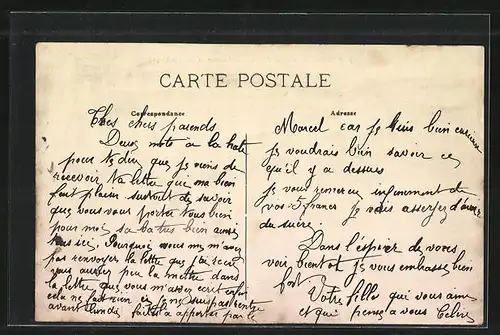 CARTE POSTALE
Correspondance
Adresse
chers parends
Deux mots a la hate
pour dire que je viens de
recevoir ta lettre qui ma bien
fait plaisir surtout de savoir
que vous vous portez tous bien
pour moi sa va tres bien aussi
tous ici, Pourquoi vous ne m'avez
pas renvoyer la lettre que j'ai
vous auriez peu la mettre dans
la lettre que vous m'avez ecrit
cela ne fait rien je ne suis pas rentre
avant lundi a apporter par le
Marcel car je suis bien curieuse
je voudrais bien savoir ce
qu'il y a dessus
je vous remercie infiniment de
vos 5 francs je vais assez d'avoir
du sucre.
Dans l'espoir de vous
voir bientot je vous embrasse bien
fort
Votre fille qui vous aime
et qui pense a vous